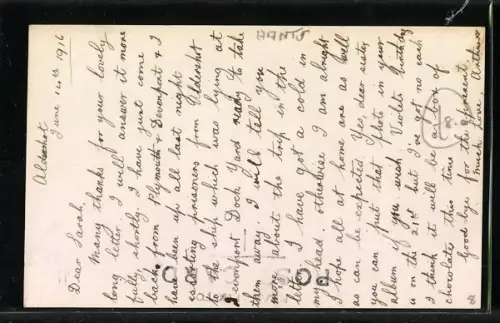 Aldershot.
June 14th 1916
Dear Sarah,
Many thanks for your lovely
long letter I will answer it more
fully shortly. I have just come
back from Plymouth & Devenport & I
have been up all last night
escorting prisoners from Aldershot
to the ship which was lying at
Devonport Dock Yard ready to take
them away. I will tell you
more about the trip in the
letter. I have got a cold in
my head otherwise I am alright
I hope all at home are as well
as can be expected Yes, dear sister,
you can put that photo in your
album if you wish. Violets birthday
is on the 21st but I've got no cash
I think it will be a box of
chocolates this time
Goodbye for the present,
Much love, Arthur
POST